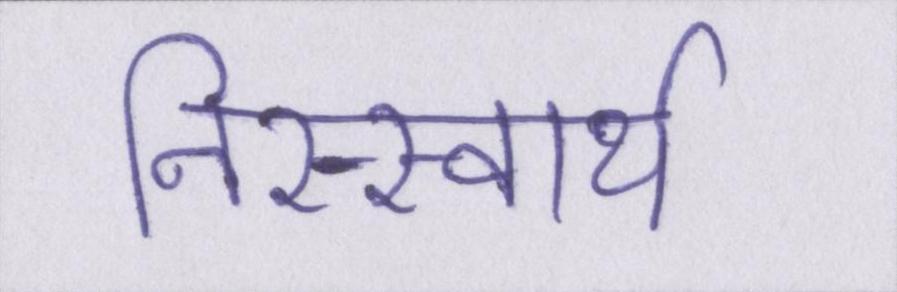 निस्स्वार्थ